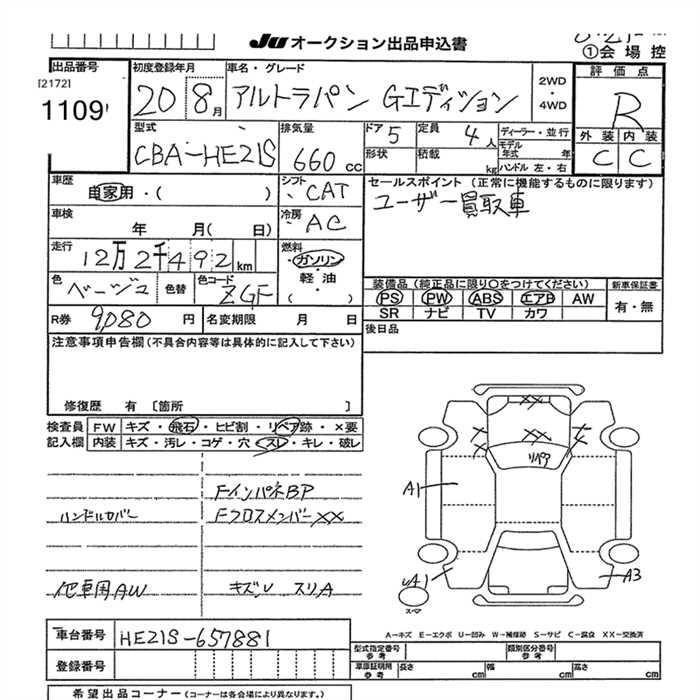 JU オークション出品申込書
①会場控
出品番号
[2172]
1109
初度登録年月
20 8月
車名・グレード
アルトラパン Gエディション
2WD
・
4WD
評価点
R
外装 内装
C C
型式
CBA-HE21S
排気量
660 cc
ドア 5
定員 4人
ディーラー・並行
モデル年式 年
形状
積載 kg
ハンドル 左・右
車歴
自家用・( )
シフト
CAT
セールスポイント (正常に機能するものに限ります)
ユーザー買取車
車検
年 月( 日)
冷房
AC
走行
12万2千492km
燃料
ガソリン
軽・油
( )
色
ベージュ
色替
色コード
ZGF
装備品(純正品に限り〇をつけてください)
PS PW ABS エアB AW
SR ナビ TV カワ
新車保証書
有・無
R券 9080 円
名変期限 月 日
後日品
注意事項申告欄(不具合内容等は具体的に記入して下さい)
修復歴 有 〔箇所 〕
検査員記入欄
FW キズ・飛石・ヒビ割・リペア跡・×要
内装 キズ・汚レ・コゲ・穴・スレ・キレ・破レ
FインパネBP
ハンドルカバー
FクロスメンバーXX
他車用AW
キズU スリA
XX
XX
リペア
A1
A3
スペア
A―キズ E―エクボ U―凹み W―補修跡 S―サビ C―腐食 XX―交換済
車台番号 HE21S-657881
登録番号
型式指定番号 参考
類別区分番号 参考
車庫証明用 参考
長さ cm
幅 cm
高さ cm
希望出品コーナー(コーナーは各会場により異なります。)